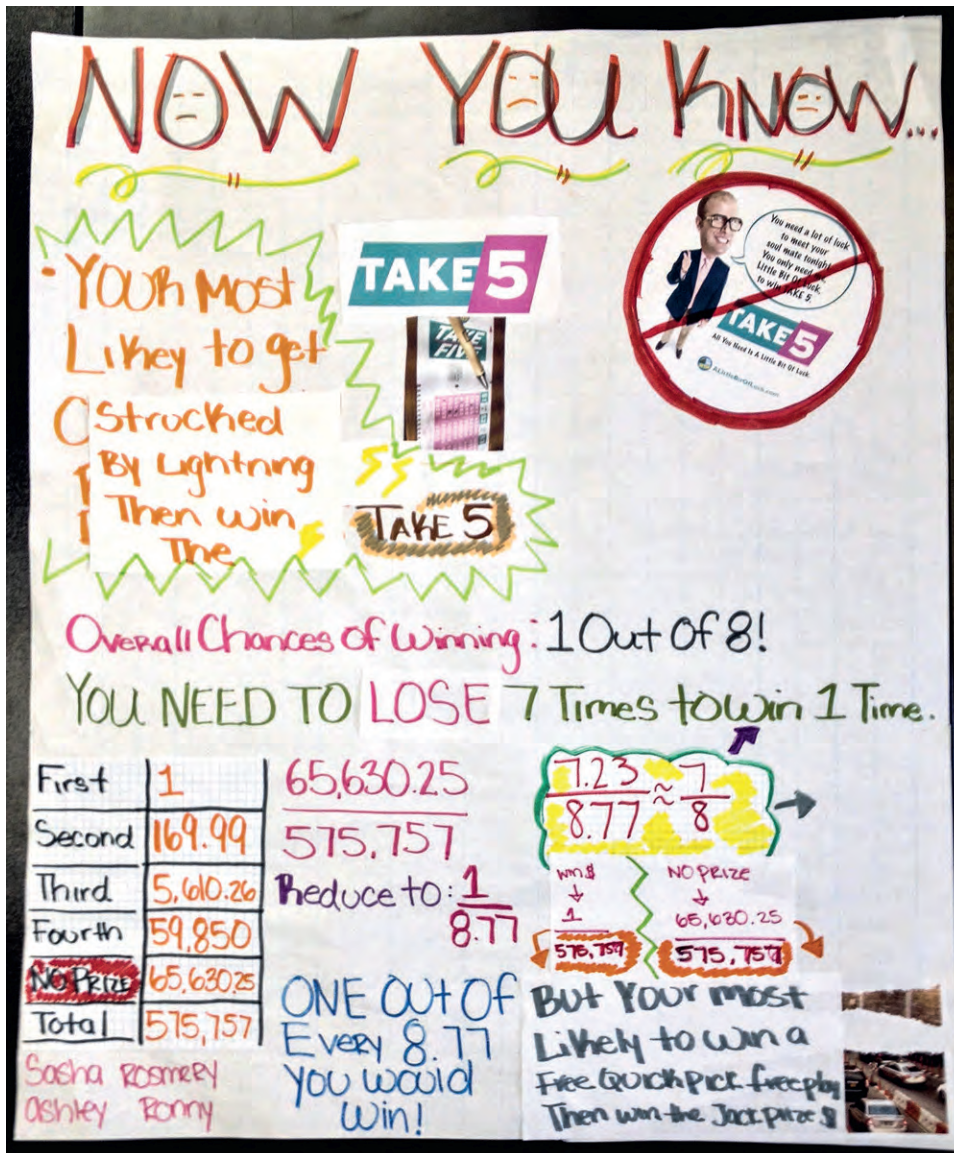 NOW YOU KNOW...
• YOUR MOST
Likey to get
Strucked
By Lightning
Then win
The
TAKE 5
TAKE 5
TAKE
FIVE
You need a lot of luck
to meet your
soul mate tonight.
You only need a
Little Bit Of Luck
to win TAKE 5.
TAKE 5
All You Need Is A Little Bit Of Luck
ALittleBitOfLuck.com
Overall Chances Of Winning: 1 Out Of 8!
YOU NEED TO LOSE 7 Times to Win 1 Time.
First 1
Second 169.99
Third 5,610.26
Fourth 59,850
NO PRIZE 65,630.25
Total 575,757
Sasha Rosmery
Ashley Ronny
65,630.25
575,757
Reduce to: 1
8.77
ONE OUT OF
Every 8.77
YOU WOULD
WIN!
7.23 ≈ 7
8.77 8
Win $ NO PRIZE
1 65,630.25
575,757 575,757
But Your most
Likely to win a
Free Quick Pick free play
Then win the Jack prize $